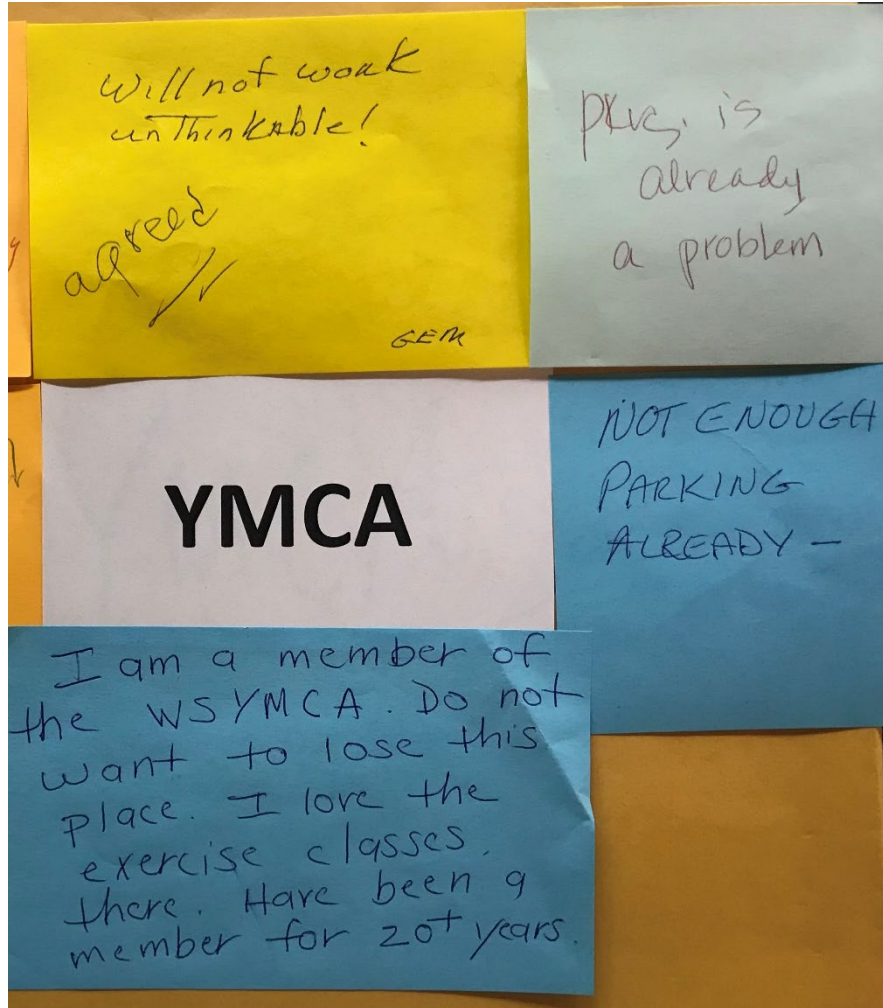 Will not work
unThinkable!
agreed
GEM
pkg. is
already
a problem
YMCA
NOT ENOUGH
PARKING
ALREADY –
I am a member of
the WSYMCA. Do not
want to lose this
place. I love the
exercise classes
there. Have been a
member for 20+ years.